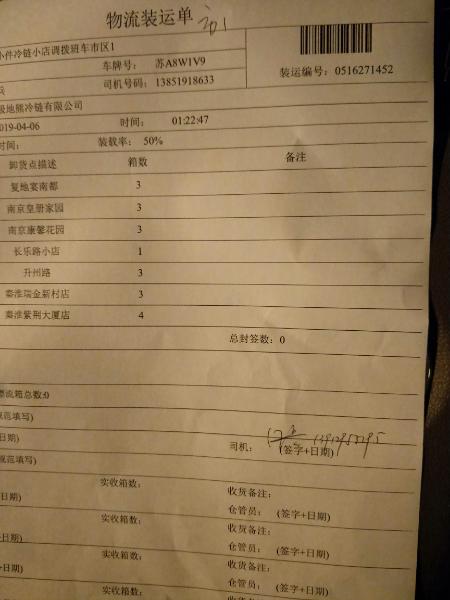 物流装运单
小件冷链小店调拨班车市区1
车牌号： 苏A8W1V9
司机号码：13851918633
装运编号：0516271452
极地熊冷链有限公司
019-04-06 时间： 01:22:47
时间： 装载率： 50%
卸货点描述 箱数 备注
复地宴南都 3
南京皇册家园 3
南京康馨花园 3
长乐路小店 1
升州路 3
秦淮瑞金新村店 3
秦淮紫荆大厦店 4
总封签数：0
漂流箱总数:0
规范填写)
日期) 司机： (签字+日期)
规范填写)
实收箱数： 收货备注：
日期) 仓管员： (签字+日期)
实收箱数： 收货备注：
日期) 仓管员： (签字+日期)
实收箱数： 收货备注：
日期) 仓管员： (签字+日期)
实收箱数： 收货备注：